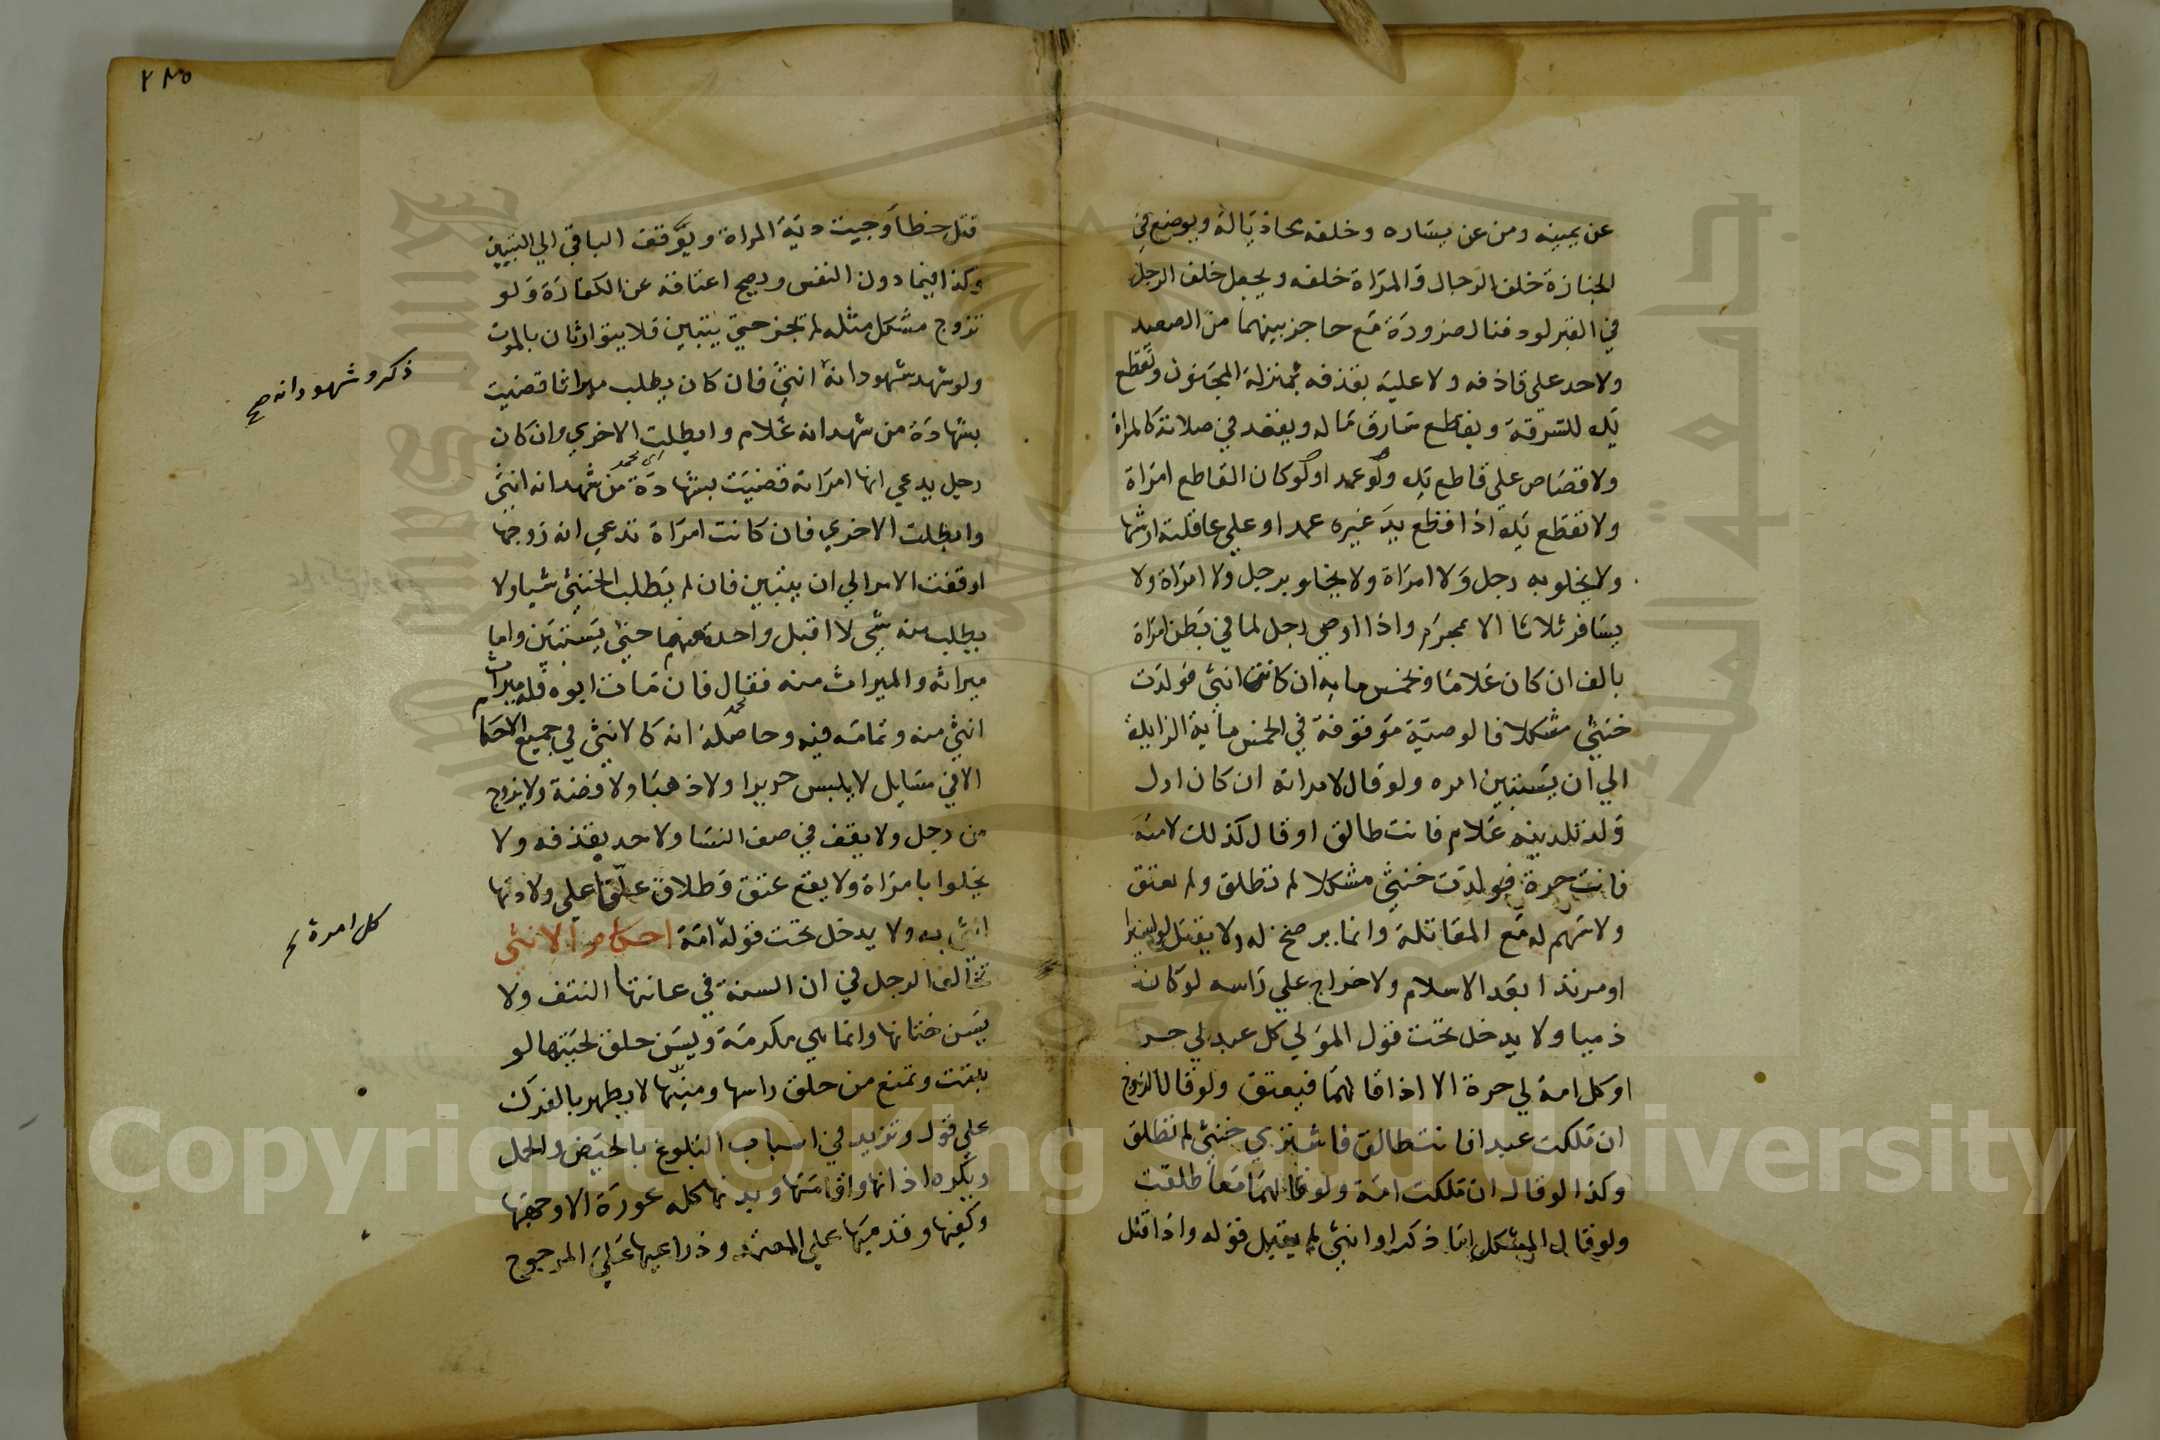 عن يمينه ومن عن يساره وخلفه بحاذياله ويوضع في
الجنازة خلف الرجال والمراة خلفه ويجعل خلف الرجل
في القبر لو دفنا لضرورة مع حاجز بينهما من الصعيد
ولا حد على قاذفه ولا عليه بقذفه بمنزلة المجنون وتقطع
يده للسرقة ويقطع سارق ماله ويقعد في صلاته كالمراة
ولا قصاص على قاطع يده ولو عمدا ولو كان القاطع امراة
ولا تقطع يده اذا قطع يد غيره عمدا وعلى عاقلته ارشها
ولا يخلو به رجل ولا امراة ولا يخلو برجل ولا امراة ولا
يسافر ثلاثا الا بمحرم واذا اوصى رجل لما في بطن امراة
بالف ان كان غلاما وبخمس مايه ان كانت انثى فولدت
خنثى مشكلا فالوصية موقوفة في الخمس ماية الزايدة
الي ان يستبين امره ولو قال لامراته ان كان اول
ولد تلدينه غلام فانت طالق او قال كذلك لامته
فانت حرة فولدت خنثى مشكلا لم تطلق ولم تعتق
ولا سهم له مع المقاتلة وانما يرضخ له ولا يقتل لو اسيرا
او مرتدا بعد الاسلام ولا خراج علي راسه لو كان
ذميا ولا يدخل تحت قول المولي كل عبد لي حر
او كل امة لي حرة الا اذا قالهما فيعتق ولو قال الزوج
ان ملكت عبدا فانت طالق فاشتري خنثى لم تطلق
وكذا لو قال ان ملكت امة ولو قالهما معا طلقت
ولو قال المشكل انا ذكر او انثى لم يقبل قوله واذا قتل
٢٨٥
قتل خطا وجبت دية المراة ويوقف الباقي الي التبيين
وكذا فيما دون النفس ويصح اعتاقه عن الكفارة ولو
تزوج مشكل مثله لم يجز حتي يتبين فلا يتوارثان بالموت
ولو شهد شهود انه انثى فان كان يطلب ميراثا قضيت
بشهادة من شهد انه غلام وابطلت الاخري وان كان
رجل يدعي انها امراته قضيت بشهادة من شهد انه انثى
وابطلت الاخري فان كانت امراة تدعي انه زوجها
اوقفت الامر الي ان يتبين فان لم يطلب الخنثى شيا ولا
يطلب منه شي لا اقبل واحدة منهما حتى يستبين واما
ميراثه والميراث منه فقال فان مات ابوه فله ميراث
انثى منه وتمامه فيه وحاصله انه كالانثى في جميع الاحكام
الا في مسايل لا يلبس حريرا ولا ذهبا ولا فضة ولا يزوج
من رجل ولا يقف في صف النسا ولا حد بقذفه ولا
يخلوا بامراة ولا يقع عتق وطلاق علقا علي ولادتها
انثى به ولا يدخل تحت قوله امة احكام الانثى
تخالف الرجل في ان السنة في عانتها النتف ولا
يسن ختانها وانما هي مكرمة ويسن حلق لحيتها لو
نبتت وتمنع من حلق راسها ومنيها لا يطهر بالفرك
علي قول وتزيد في اسباب البلوغ بالحيض والحمل
ويكره اذانها واقامتها وبدنها كله عورة الا وجهها
وكفيها وقدميها علي المعتمد وذراعيها علي المرجوح
ذكر وشهود انه صح
كل امرة